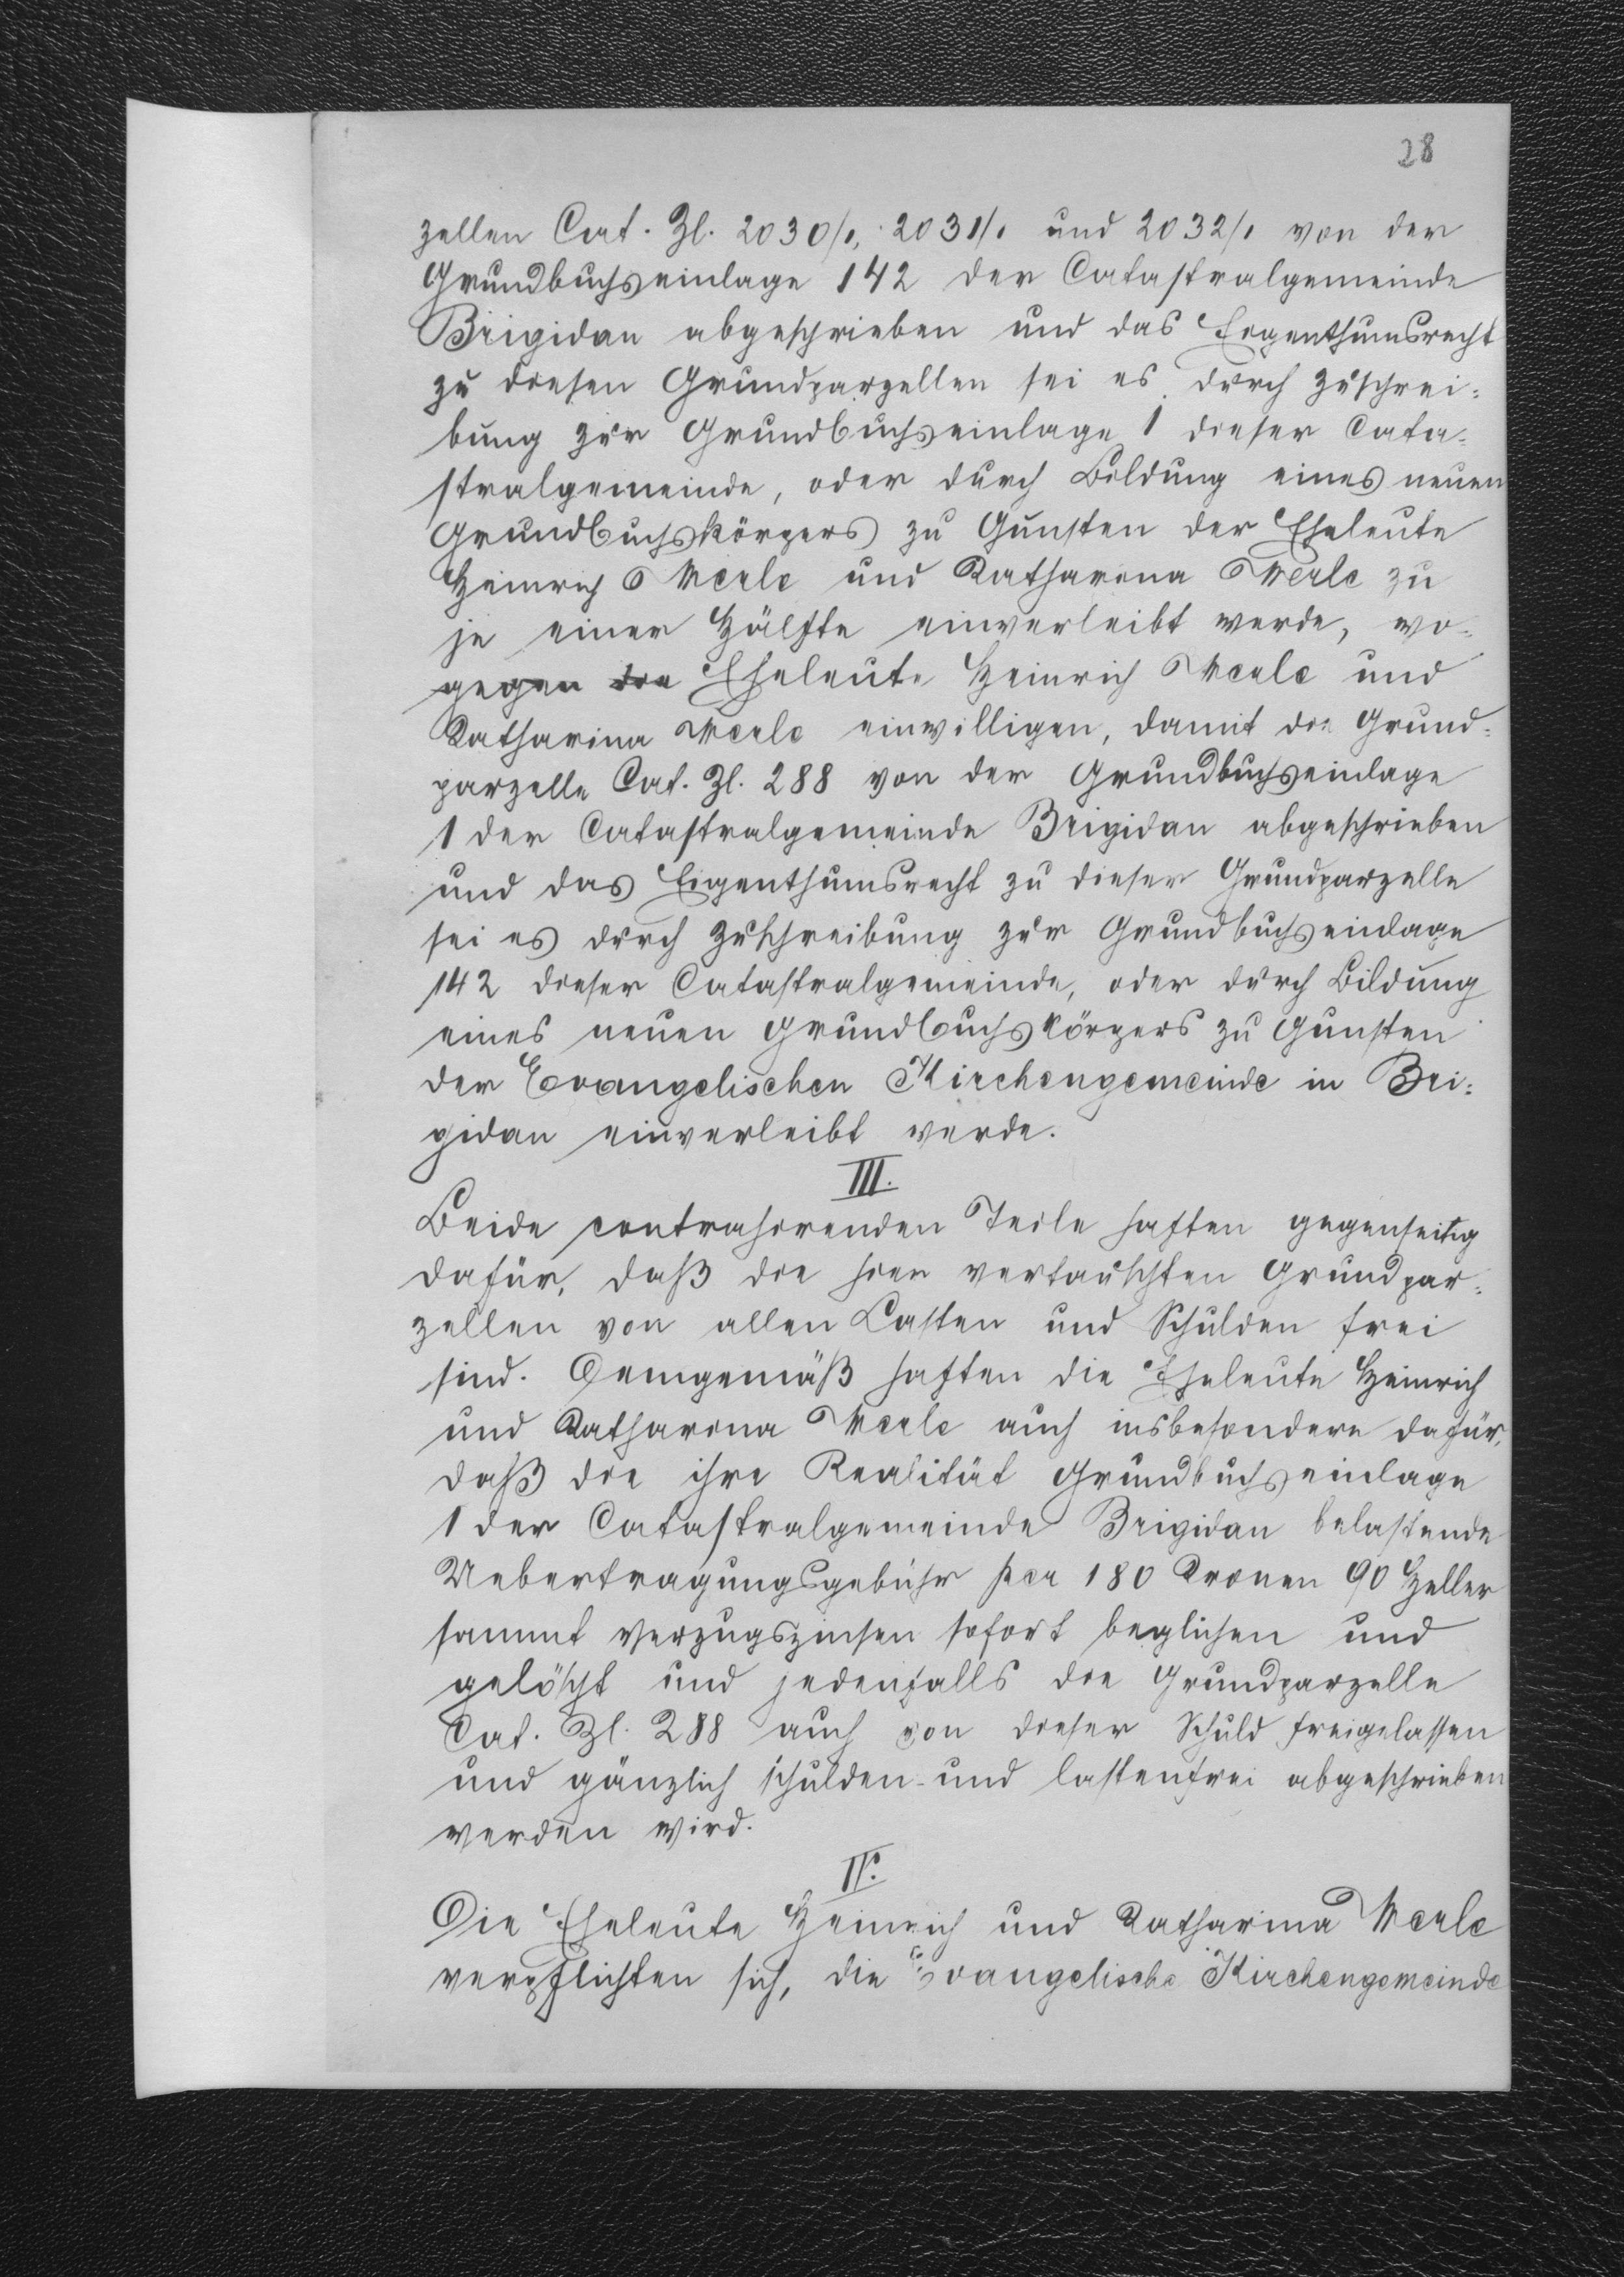 28
zellen Cat. Zl. 2030/1, 2031/1 und 2032/1 von der
Grundbuchseinlage 142 der Catastralgemeinde
Brigidau abgeschrieben und das Eigenthumsrecht
zu diesen Grundparzellen sei es durch Zuschrei=
bung zur Grundbuchseinlage 1 dieser Cata=
stralgemeinde, oder durch Bildung eines neuen
Grundbuchskörpers zu Gunsten der Eheleute
Heinrich Merle und Katharina Merle zu
je einer Hälfte einverleibt werde, wo=
gegen die Eheleute Heinrich Merle und
Katharina Merle einwilligen, damit die Grund=
parzelle Cat. Zl. 288 von der Grundbuchseinlage
1 der Catastralgemeinde Brigidau abgeschrieben
und das Eigenthumsrecht zu dieser Grundparzelle
sei es durch Zuschreibung zur Grundbuchseinlage
142 dieser Catastralgemeinde, oder durch Bildung
eines neuen Grundbuchskörpers zu Gunsten
der Evangelischen Kirchengemeinde in Bri=
gidau einverleibt werde.
III.
Beide contrahirenden Teile haften gegenseitig
dafür, daß die hier vertauschten Grundpar=
zellen von allen Lasten und Schulden frei
sind. Demgemäß haften die Eheleute Heinrich
und Katharina Merle auch insbesondere dafür,
daß die ihre Realität Grundbuchseinlage
1 der Catastralgemeinde Brigidau belastende
Uebertragungsgebühr per 180 Kronen 90 Heller
sammt Verzugszinsen sofort beglichen und
gelöscht und jedenfalls die Grundparzelle
Cat. Zl. 288 auch von dieser Schuld freigelassen
und gänzlich schulden- und lastenfrei abgeschrieben
werden wird.
IV.
Die Eheleute Heinrich und Katharina Merle
verpflichten sich, die Evangelische Kirchengemeinde